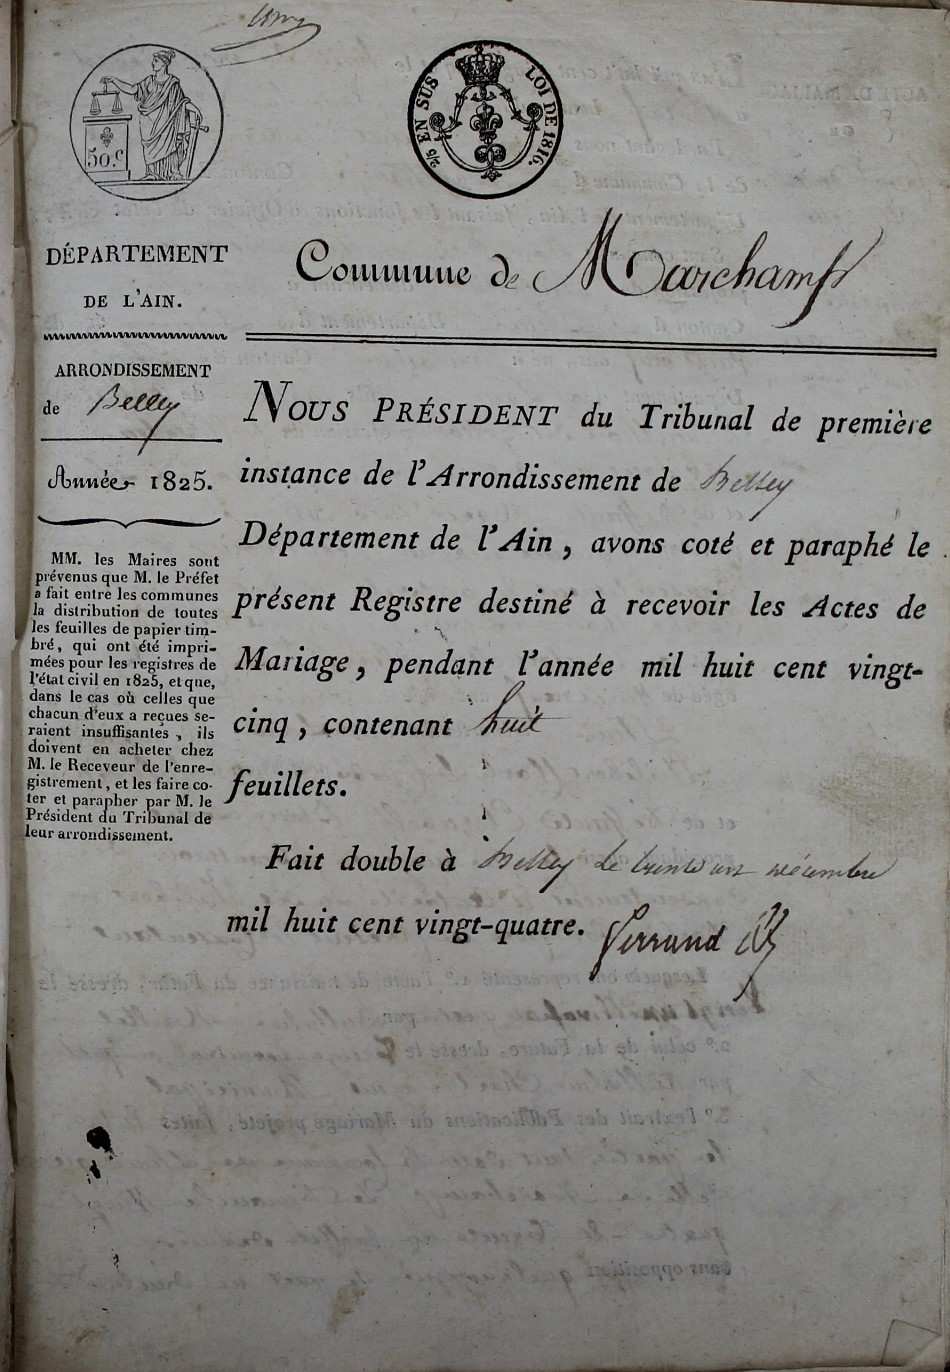 50.c
2/5 EN SUS
LOI DE 1816.
DÉPARTEMENT
DE L'AIN.
Commune de Marchamp
ARRONDISSEMENT
de Belley
Année 1825.
MM. les Maires sont
prévenus que M. le Préfet
a fait entre les communes
la distribution de toutes
les feuilles de papier tim-
bré, qui ont été impri-
mées pour les registres de
l'état civil en 1825, et que,
dans le cas où celles que
chacun d'eux a reçues se-
raient insuffisantes, ils
doivent en acheter chez
M. le Receveur de l'enre-
gistrement, et les faire co-
ter et parapher par M. le
Président du Tribunal de
leur arrondissement.
NOUS PRÉSIDENT du Tribunal de première
instance de l'Arrondissement de Belley
Département de l'Ain, avons coté et paraphé le
présent Registre destiné à recevoir les Actes de
Mariage, pendant l'année mil huit cent vingt-
cinq, contenant huit
feuillets.
Fait double à Belley le trente un décembre
mil huit cent vingt-quatre.